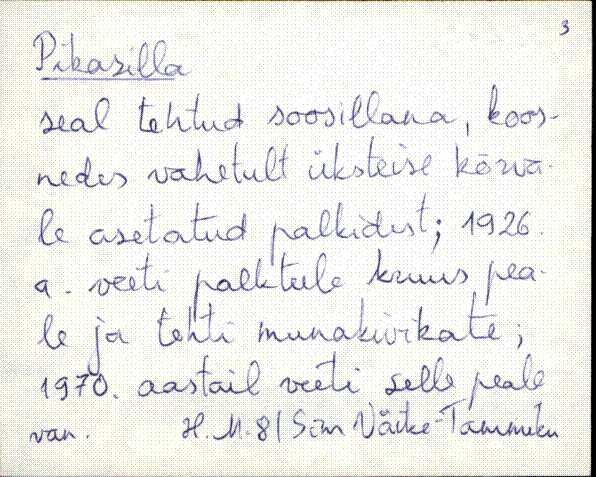 3
Pikasilla
seal tehtud soosillana, koos-
nedes vahetult üksteise kõrva-
le asetatud palkidest; 1926.
a. veeti palkteele kruus pea-
le ja tehti munakivikate;
1970. aastail veeti selle peale
van. H. M. 81 Sim Väike-Tammiku